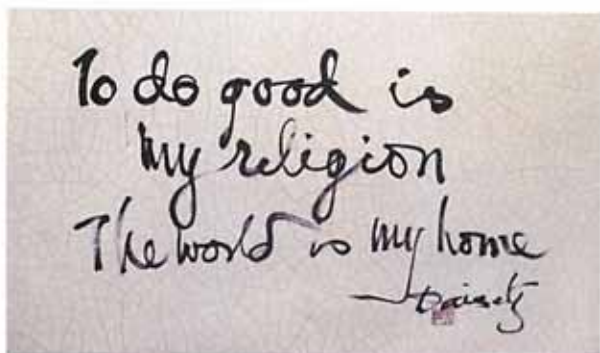 To do good is
my religion
The world is my home
— Daisetz